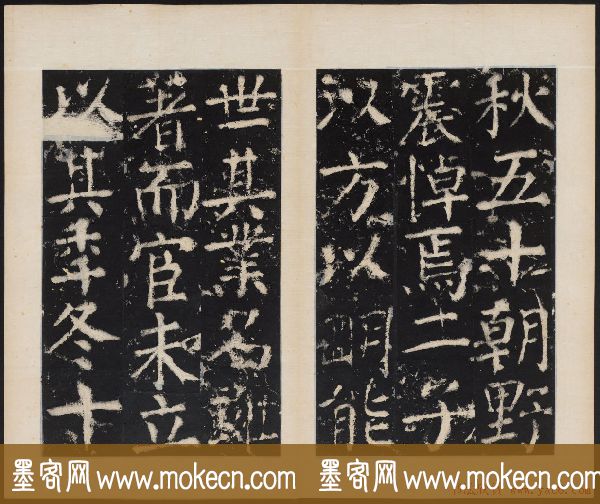 秋五十朝野
震悼焉二子
以方以明能
世其業名雖
著而官未立
以其秊冬十
墨客网 www.mokecn.com
墨客网 www.mokecn.com